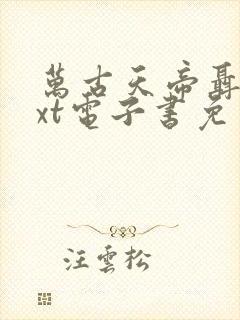 萬古天帝聶
xt電子書免
汪雲松